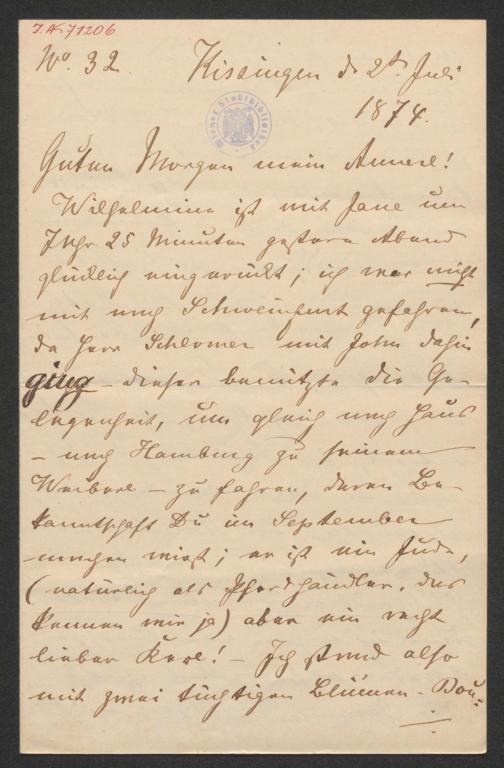 J.N. 71206
No. 32
Kissingen d 2t. Juli
1874.
Wiener Stadtbibliothek
Guten Morgen mein Annerl!
Wilhelmine ist mit Jane um
7 Uhr 25 Minuten gestern Abend
glücklich eingerückt; ich war nicht
mit nach Schweinfurt gefahren,
da Herr Schlomer mit John dahin
ging – dieser benützte die Ge-
legenheit, um gleich nach Haus
– nach Hamburg zu seinem
Weiberl – zu fahren, deren Be-
kanntschaft Du im September
machen wirst; er ist ein Jude,
(natürlich als Pferdhändler, das
kennen wir ja) aber ein recht
lieber Kerl! – Ich stand also
mit zwei tüchtigen Blumen-Bou-